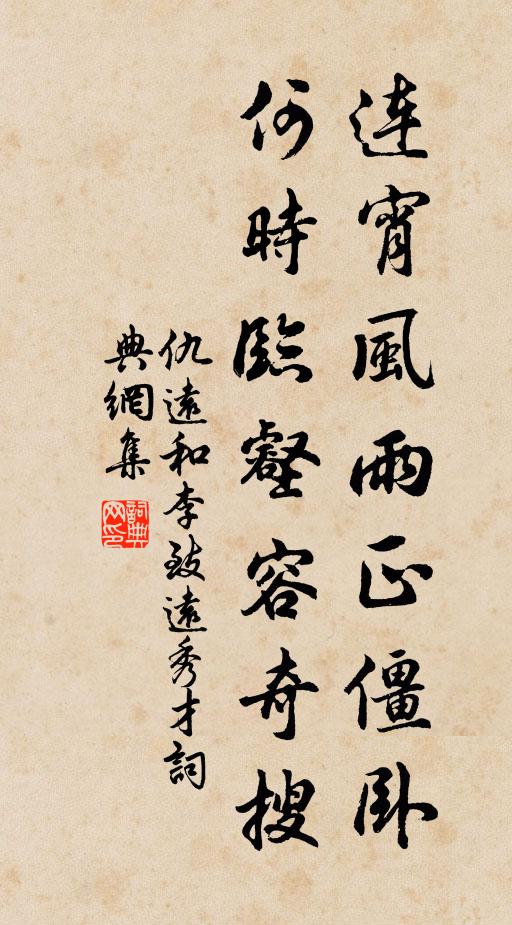 連宵風雨正僵臥
何時臨壑容奇搜
仇遠和李致遠秀才詞
典網集
詞典
网印